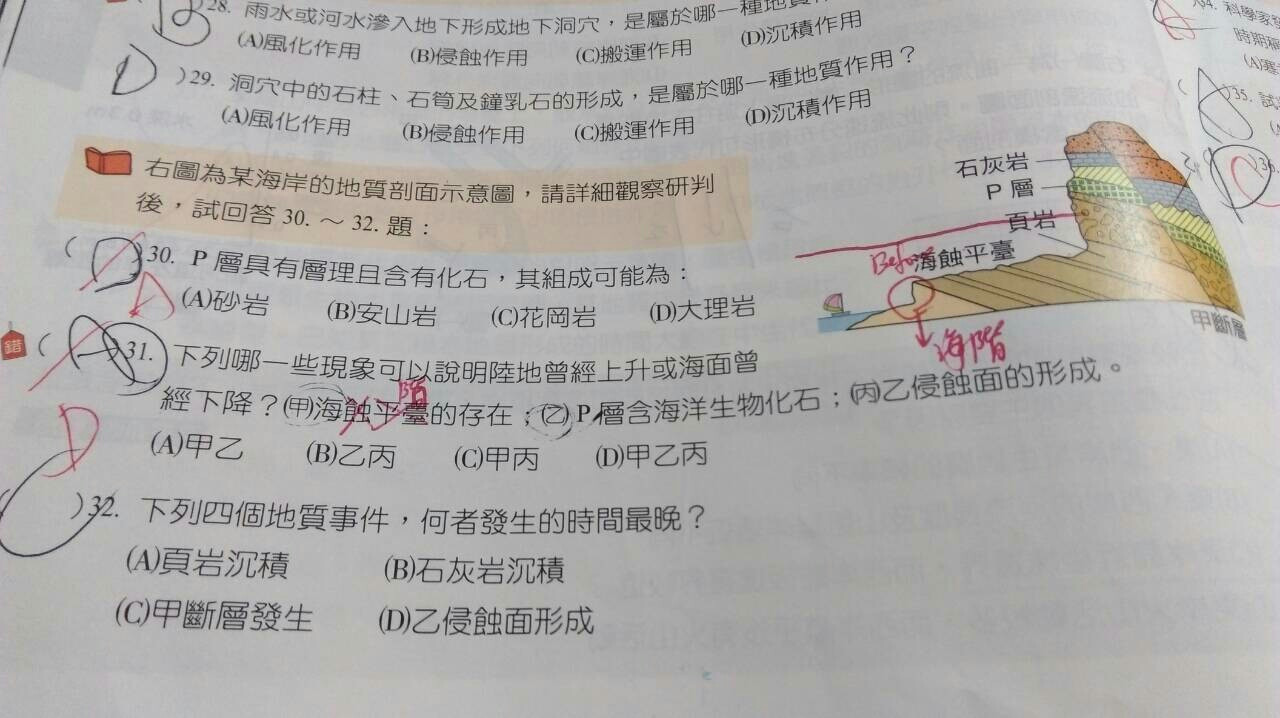 28. 雨水或河水滲入地下形成地下洞穴，是屬於哪一種地質作
(A)風化作用 (B)侵蝕作用 (C)搬運作用 (D)沉積作用
D )29. 洞穴中的石柱、石筍及鐘乳石的形成，是屬於哪一種地質作用？
(A)風化作用 (B)侵蝕作用 (C)搬運作用 (D)沉積作用
右圖為某海岸的地質剖面示意圖，請詳細觀察研判
後，試回答 30. ～ 32. 題：
( D )30. P 層具有層理且含有化石，其組成可能為：
A
(A)砂岩 (B)安山岩 (C)花岡岩 (D)大理岩
錯 ( A )31. 下列哪一些現象可以說明陸地曾經上升或海面曾
階
經下降？(甲)海蝕平臺的存在；(乙) P 層含海洋生物化石；(丙)乙侵蝕面的形成。
D
(A)甲乙 (B)乙丙 (C)甲丙 (D)甲乙丙
( C )32. 下列四個地質事件，何者發生的時間最晚？
(A)頁岩沉積 (B)石灰岩沉積
(C)甲斷層發生 (D)乙侵蝕面形成
石灰岩
P 層
頁岩
Before
海蝕平臺
甲斷層
海階
34. 科學家
時期
A )35. 試
C )36.